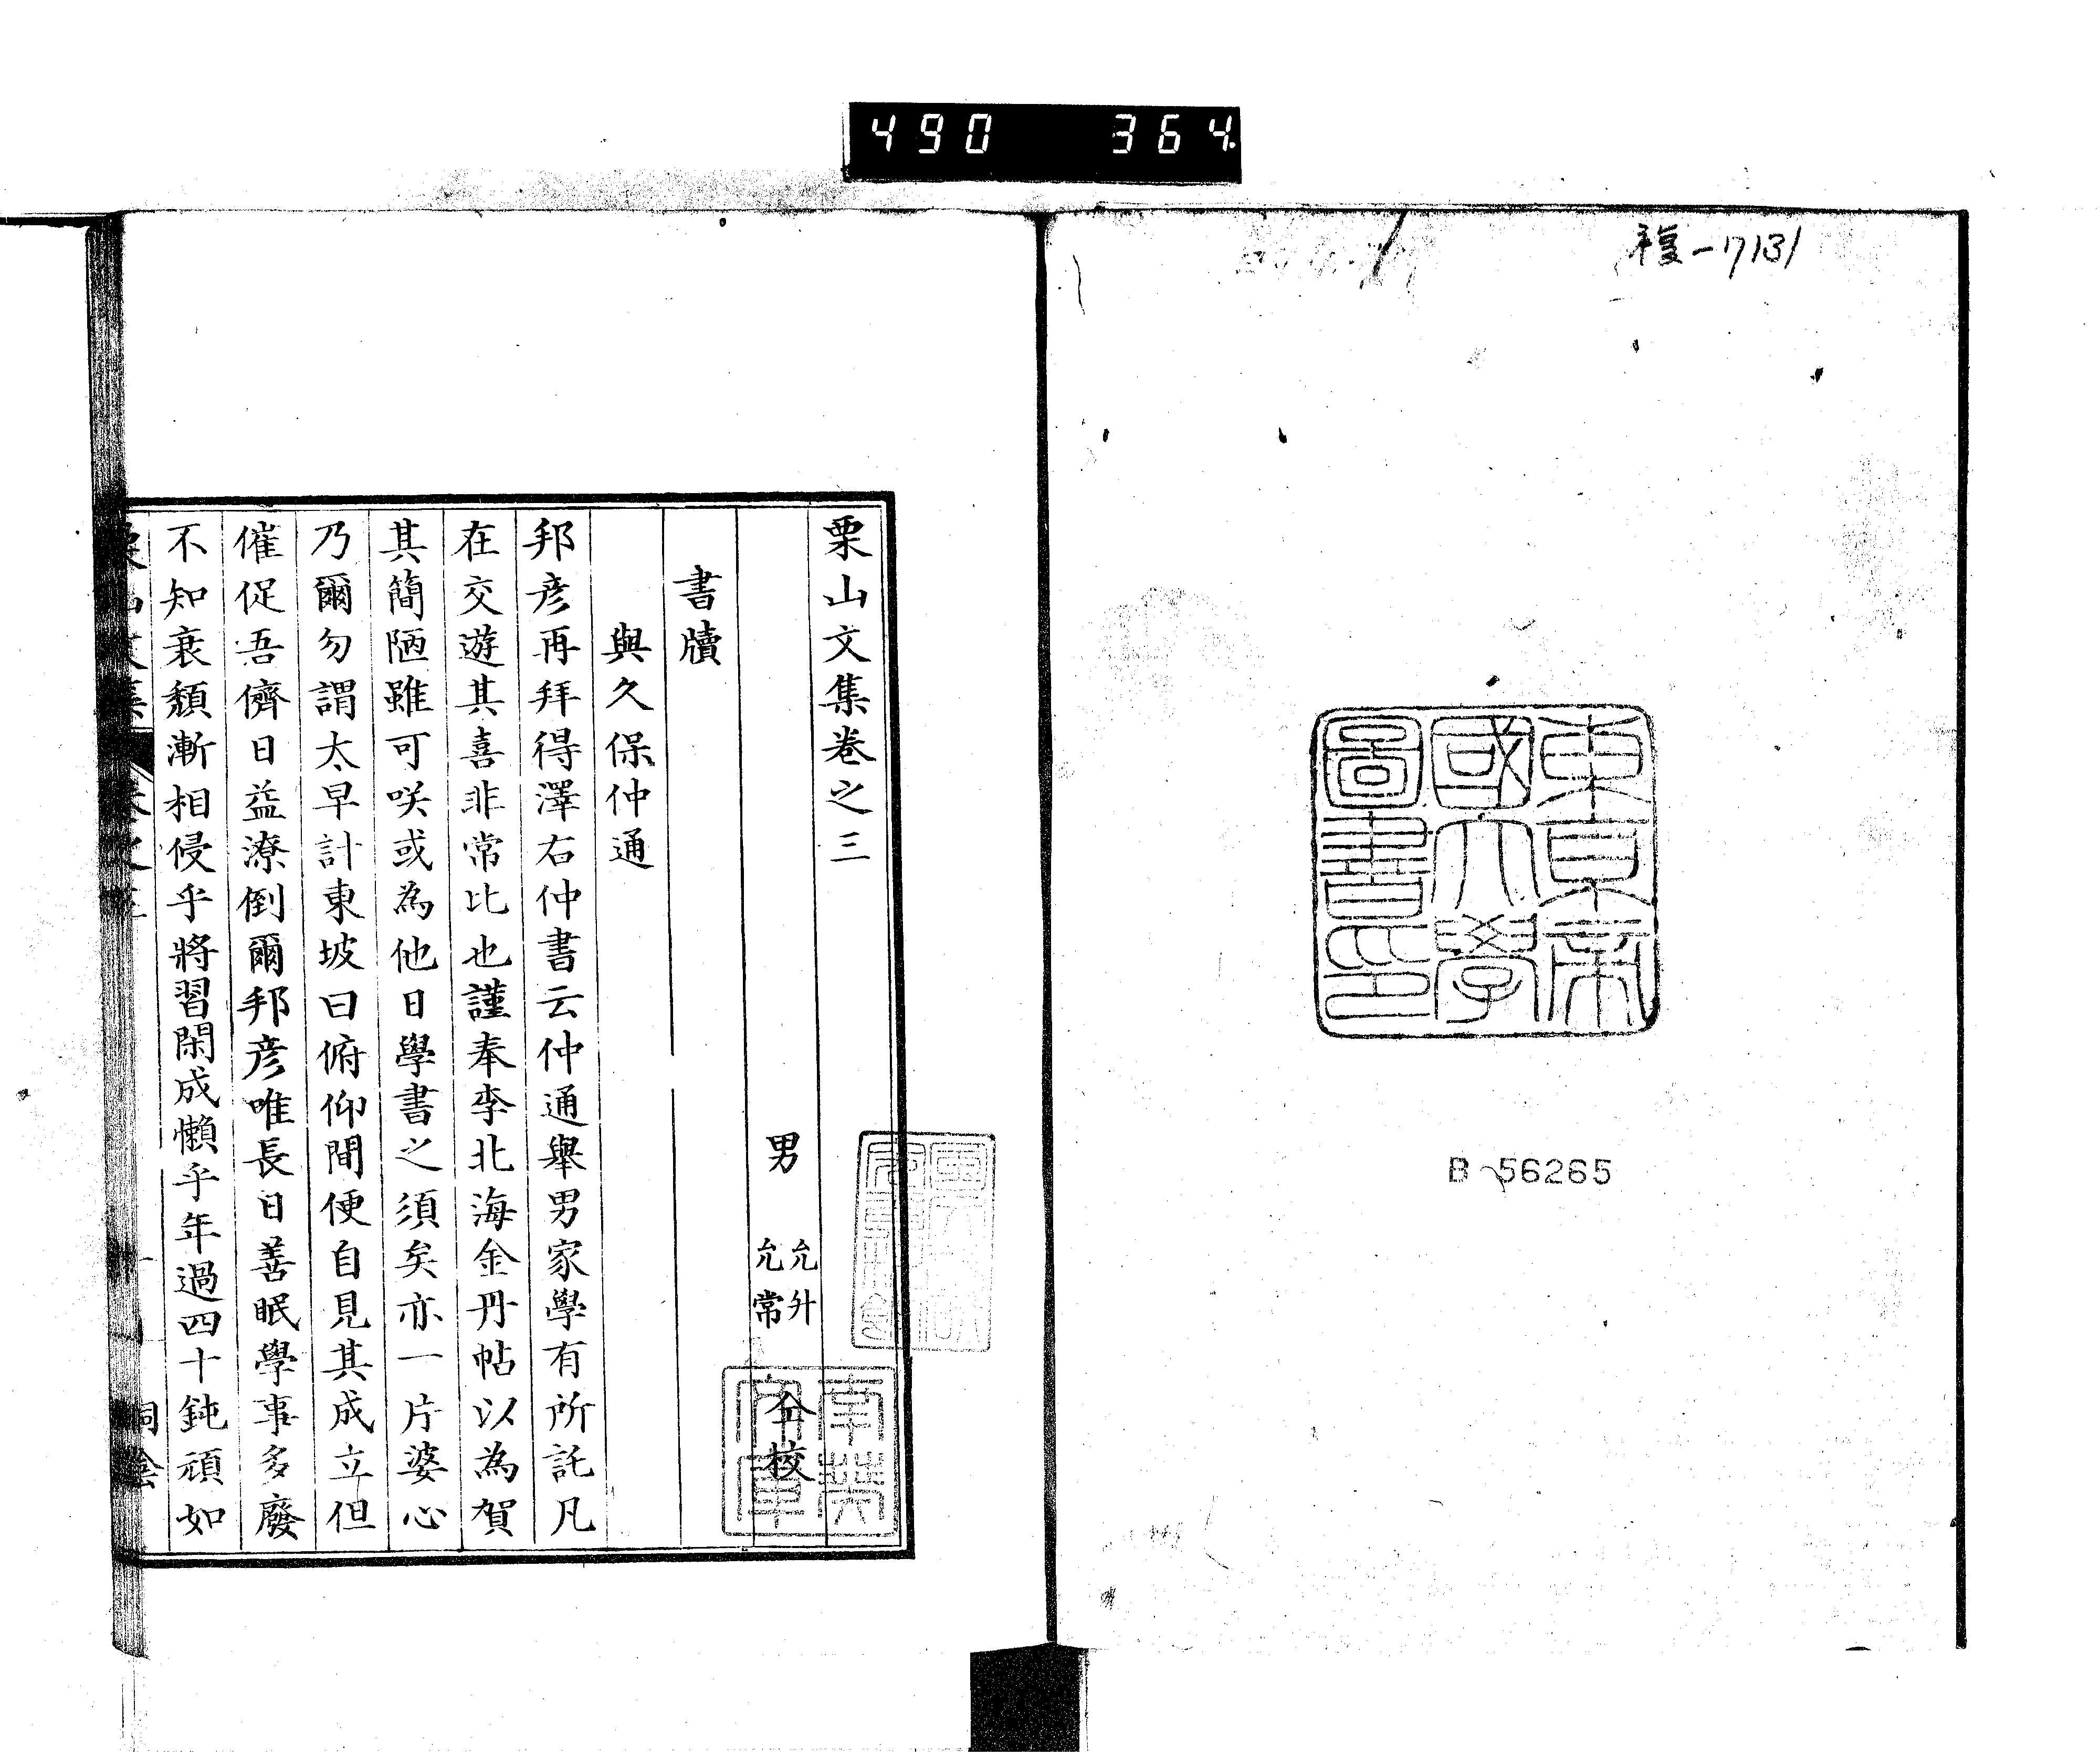 490 364.
複-7131
東京帝
國大學
圖書印
B 56265
栗山文集卷之三
男 允升 允常 仝校
書牘
與久保仲通
邦彦再拜得澤右仲書云仲通舉男家學有所託凡
在交遊其喜非常比也謹奉李北海金丹帖以為賀
其簡陋雖可咲或為他日學書之須矣亦一片婆心
乃爾勿謂太早計東坡曰俯仰間便自見其成立但
催促吾儕日益潦倒爾邦彦唯長日善眠學事多廢
不知衰頽漸相侵乎將習閑成懶乎年過四十鈍頑如